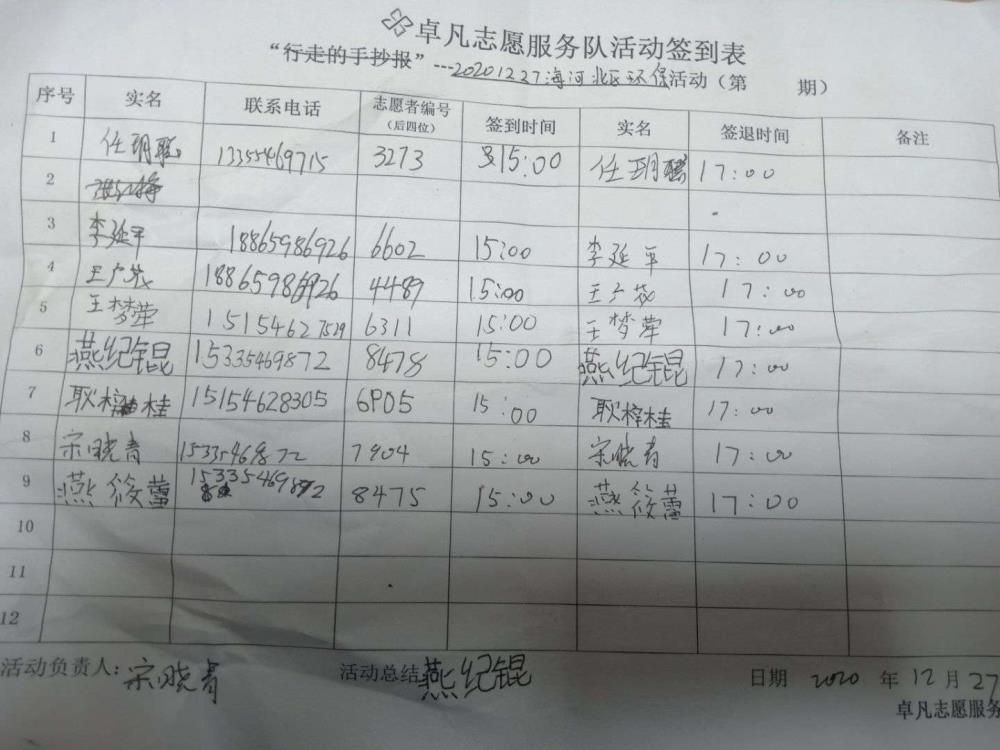 卓凡志愿服务队活动签到表
“行走的手抄报”---20201227海河北区环保活动（第 期）
序号 实名 联系电话 志愿者编号（后四位） 签到时间 实名 签退时间 备注
1 任玥聪 13355469715 3273 15:00 任玥聪 17:00
2
3 李延平 18865986926 6602 15:00 李延平 17:00
4 王广茂 18865986926 4489 15:00 王广茂 17:00
5 王梦莹 15154627529 6311 15:00 王梦莹 17:00
6 燕纪锟 15335469872 8478 15:00 燕纪锟 17:00
7 耿梓桂 15154628305 6P05 15:00 耿梓桂 17:00
8 宋晓青 15335469872 7904 15:00 宋晓青 17:00
9 燕筱蕾 15335469872 8475 15:00 燕筱蕾 17:00
10
11
12
活动负责人：宋晓青 活动总结 燕纪锟 日期 2020 年 12 月 27
卓凡志愿服务